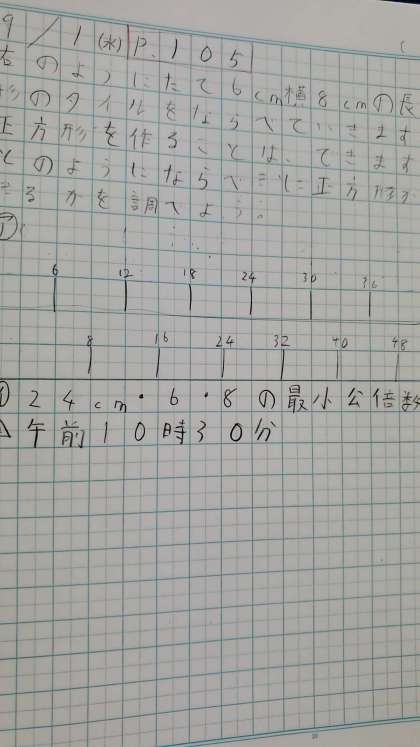 9/1(水) P.105
右のようにたて6cm横8cmの長
形のタイルをならべていきます
正方形を作ることは、できます
のようにならべ 正方形が
きるかを調べよう。
①
6 12 18 24 30 36
8 16 24 32 40 48
① 24cm・6・8の最小公倍数
午前10時30分